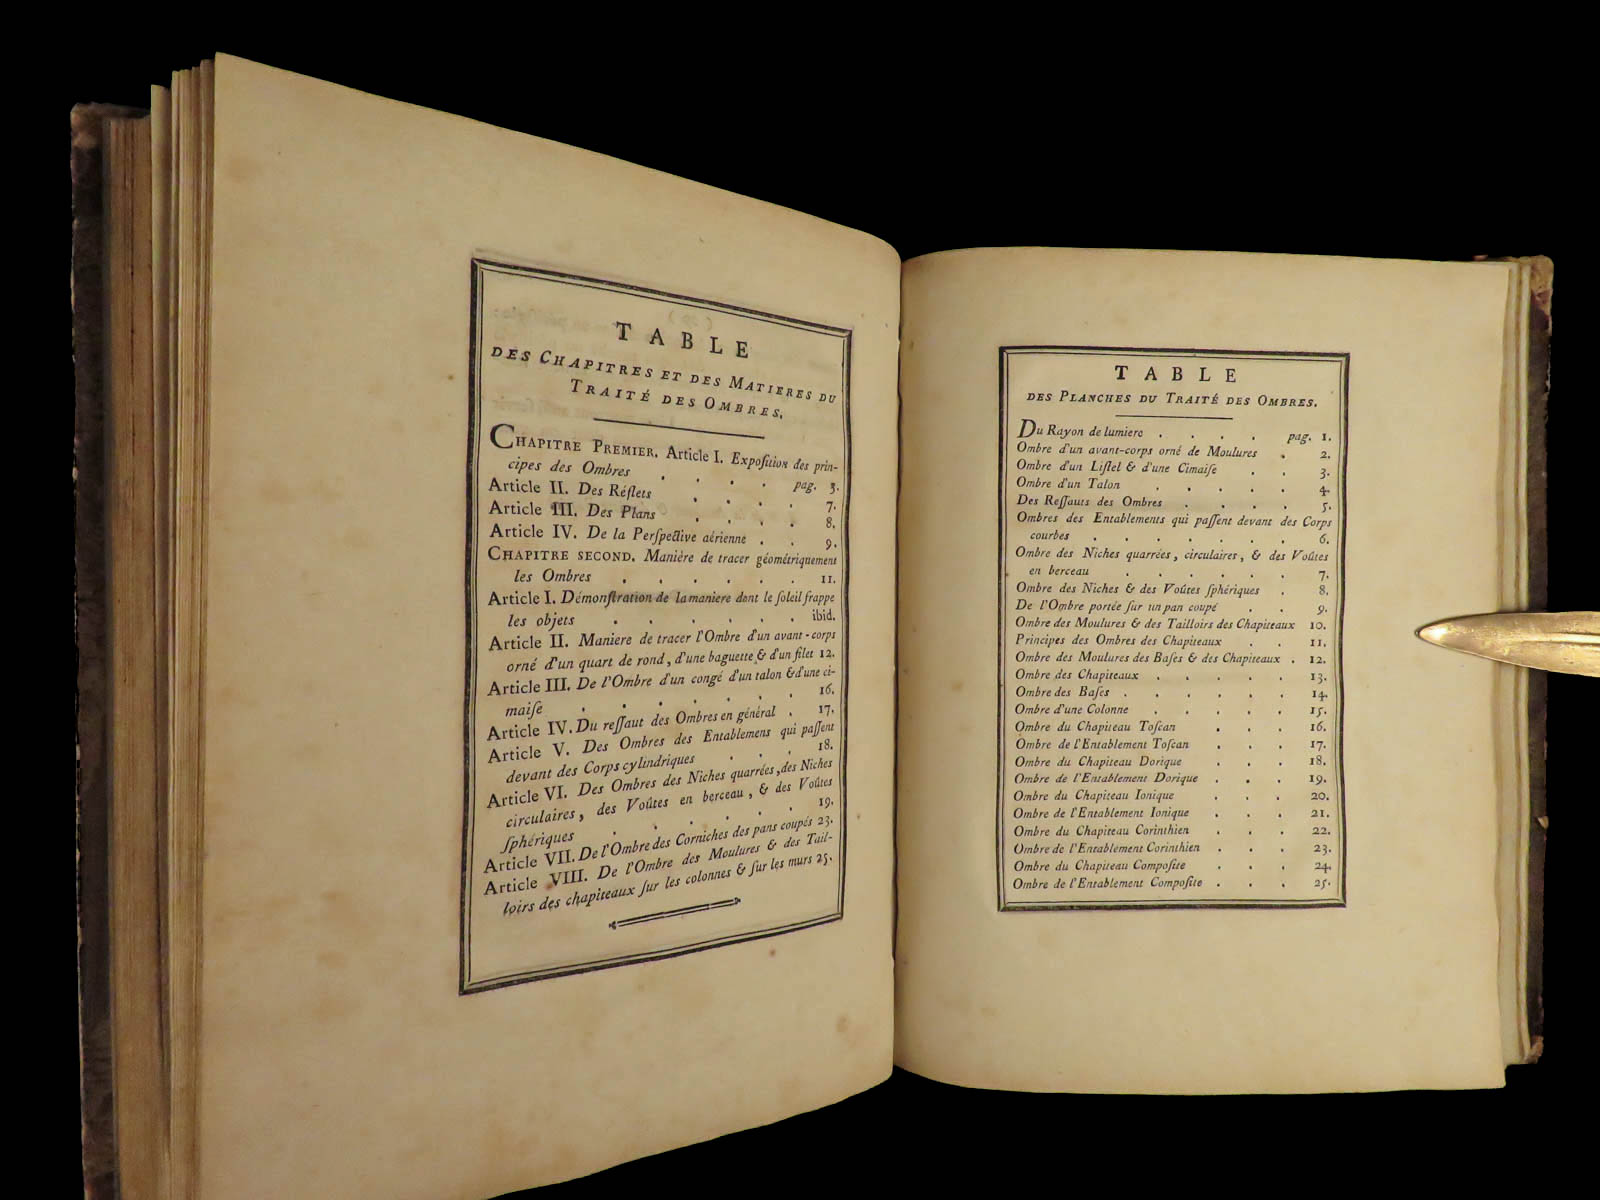 TABLE
DES CHAPITRES ET DES MATIERES DU
TRAITÉ DES OMBRES.
CHAPITRE PREMIER. Article I. Expoſition des prin-
cipes des Ombres . . . . pag. 3.
Article II. Des Réflets . . . . 7.
Article III. Des Plans . . . . 8.
Article IV. De la Perſpective aérienne . . 9.
CHAPITRE SECOND. Manière de tracer géométriquement
les Ombres . . . . . . 11.
Article I. Démonſtration de la maniere dont le ſoleil frappe
les objets . . . . . . ibid.
Article II. Maniere de tracer l'Ombre d'un avant-corps
orné d'un quart de rond, d'une baguette & d'un filet 12.
Article III. De l'Ombre d'un congé d'un talon & d'une ci-
maiſe . . . . . . . 16.
Article IV. Du reſſaut des Ombres en général . 17.
Article V. Des Ombres des Entablemens qui paſſent
devant des Corps cylindriques . . . 18.
Article VI. Des Ombres des Niches quarrées, des Niches
circulaires, des Voûtes en berceau, & des Voûtes
ſphériques . . . . . 19.
Article VII. De l'Ombre des Corniches des pans coupés 23.
Article VIII. De l'Ombre des Moulures & des Tail-
loirs des chapiteaux ſur les colonnes & ſur les murs 25.
TABLE
DES PLANCHES DU TRAITÉ DES OMBRES.
Du Rayon de lumiere . . . . pag. 1.
Ombre d'un avant-corps orné de Moulures . 2.
Ombre d'un Liſtel & d'une Cimaiſe . . 3.
Ombre d'un Talon . . . . . 4.
Des Reſſauts des Ombres . . . . 5.
Ombres des Entablements qui paſſent devant des Corps
courbes . . . . . . . 6.
Ombre des Niches quarrées, circulaires, & des Voûtes
en berceau . . . . . . 7.
Ombre des Niches & des Voûtes ſphériques . 8.
De l'Ombre portée ſur un pan coupé . . 9.
Ombre des Moulures & des Tailloirs des Chapiteaux 10.
Principes des Ombres des Chapiteaux . . 11.
Ombre des Moulures des Baſes & des Chapiteaux . 12.
Ombre des Chapiteaux . . . . . 13.
Ombre des Baſes . . . . . . 14.
Ombre d'une Colonne . . . . . 15.
Ombre du Chapiteau Toſcan . . . 16.
Ombre de l'Entablement Toſcan . . . 17.
Ombre du Chapiteau Dorique . . . 18.
Ombre de l'Entablement Dorique . . . 19.
Ombre du Chapiteau Ionique . . . 20.
Ombre de l'Entablement Ionique . . . 21.
Ombre du Chapiteau Corinthien . . . 22.
Ombre de l'Entablement Corinthien . . . 23.
Ombre du Chapiteau Compoſite . . . 24.
Ombre de l'Entablement Compoſite . . . 25.